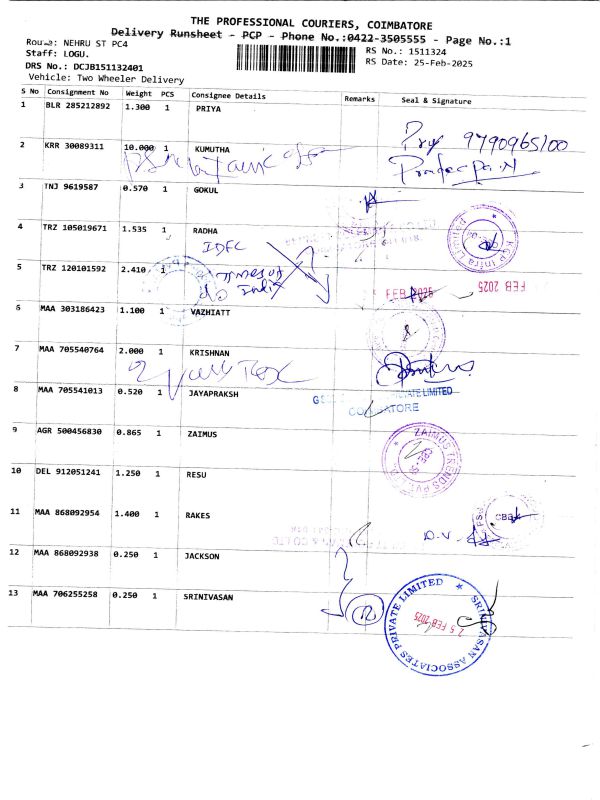 THE PROFESSIONAL COURIERS, COIMBATORE
Delivery Runsheet - PCP - Phone No.:0422-3505555 - Page No.:1
Route: NEHRU ST PC4
RS No.: 1511324
Staff: LOGU.
RS Date: 25-Feb-2025
DRS No.: DCJB151132401
Vehicle: Two Wheeler Delivery
S No Consignment No Weight PCS Consignee Details Remarks Seal & Signature
1 BLR 285212892 1.300 1 PRIYA
9790965100
2 KRR 30089311 10.000 1 KUMUTHA
Pradeepa.N
3 TNJ 9619587 0.570 1 GOKUL
4 TRZ 105019671 1.535 1 RADHA
KGP Infra Limited
IDFC
5 TRZ 120101592 2.410 1
Times of
India
FEB 2025
FEB 2025
6 MAA 303186423 1.100 1 VAZHIATT
7 MAA 705540764 2.000 1 KRISHNAN
8 MAA 705541013 0.520 1 JAYAPRAKSH
PRIVATE LIMITED
COIMBATORE
9 AGR 500456830 0.865 1 ZAIMUS
ZAIMUS TRENDS PVT. LTD.
10 DEL 912051241 1.250 1 RESU
11 MAA 868092954 1.400 1 RAKES
CBE
12 MAA 868092938 0.250 1 JACKSON
13 MAA 706255258 0.250 1 SRINIVASAN
SRINIVASAN ASSOCIATES PRIVATE LIMITED
25 FEB 2025